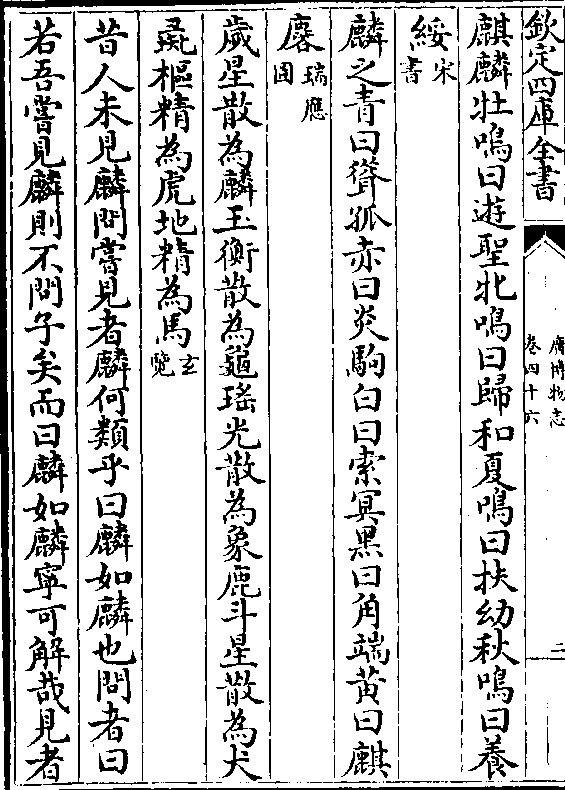 欽定四庫全書
廣博物志
卷四十六
二
麒麟牡鳴曰遊聖牝鳴曰歸和夏鳴曰扶幼秋鳴曰養
綏宋書
麟之青曰聳孤赤曰炎駒白曰索冥黑曰角端黃曰麒
麐瑞應圖
歲星散為麟玉衡散為龜瑤光散為象鹿斗星散為犬
彘樞精為虎地精為馬玄覽
昔人未見麟問嘗見者麟何類乎曰麟如麟也問者曰
若吾嘗見麟則不問子矣而曰麟如麟寧可解哉見者